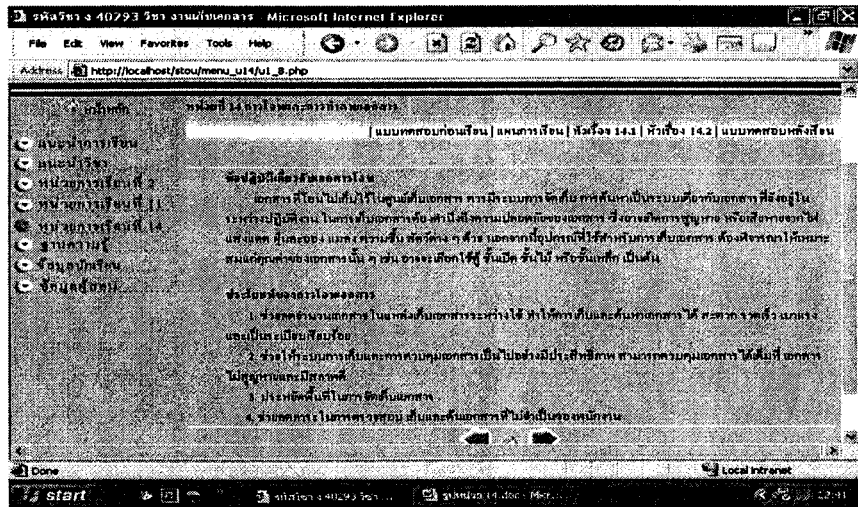 รหัสวิชา ง 40293 วิชา งานเก็บเอกสาร - Microsoft Internet Explorer
File Edit View Favorites Tools Help
Address http://localhost/stou/menu_u14/u1_8.php
หน้าหลัก
แนะนำการเรียน
แนะนำวิชา
หน่วยการเรียนที่ 2
หน่วยการเรียนที่ 11
หน่วยการเรียนที่ 14
ฐานความรู้
ข้อมูลนักเรียน
ข้อมูลผู้สอน
หน่วยที่ 14 การโอนและการทำลายเอกสาร
| แบบทดสอบก่อนเรียน | แผนการเรียน | หัวเรื่อง 14.1 | หัวเรื่อง 14.2 | แบบทดสอบหลังเรียน
ข้อปฏิบัติเกี่ยวกับเอกสารโอน
เอกสารที่โอนไปเก็บไว้ในศูนย์เก็บเอกสาร ควรมีระบบการจัดเก็บ การค้นหาเป็นระบบเดียวกับเอกสารที่ยังอยู่ใน
ระหว่างปฏิบัติงาน ในการเก็บเอกสารต้องคำนึงถึงความปลอดภัยของเอกสาร ซึ่งอาจเกิดการสูญหาย หรือเสียหายจากไฟ
แสงแดด ฝุ่นละออง แมลง ความชื้น สัตว์ต่าง ๆ ด้วย นอกจากนี้อุปกรณ์ที่ใช้สำหรับการเก็บเอกสาร ต้องพิจารณาให้เหมาะ
สมแก่คุณค่าของเอกสารนั้น ๆ เช่น อาจจะเลือกใช้ตู้ ชั้นเปิด ชั้นไม้ หรือชั้นเหล็ก เป็นต้น
ประโยชน์ของการโอนเอกสาร
1. ช่วยลดจำนวนเอกสารในแหล่งเก็บเอกสารระหว่างใช้ ทำให้การเก็บและค้นหาเอกสารได้ สะดวก รวดเร็ว เบาแรง
และเป็นระเบียบเรียบร้อย
2. ช่วยให้ระบบการเก็บและการควบคุมเอกสารเป็นไปอย่างมีประสิทธิภาพ สามารถควบคุมเอกสารได้เต็มที่ เอกสาร
ไม่สูญหายและมีสภาพดี
3. ประหยัดพื้นที่ในการจัดเก็บเอกสาร
4. ช่วยลดภาระในการตรวจสอบ เก็บและค้นเอกสารที่ไม่จำเป็นของพนักงาน
Done
Local intranet
start
รหัสวิชา ง 40293 วิชา ...